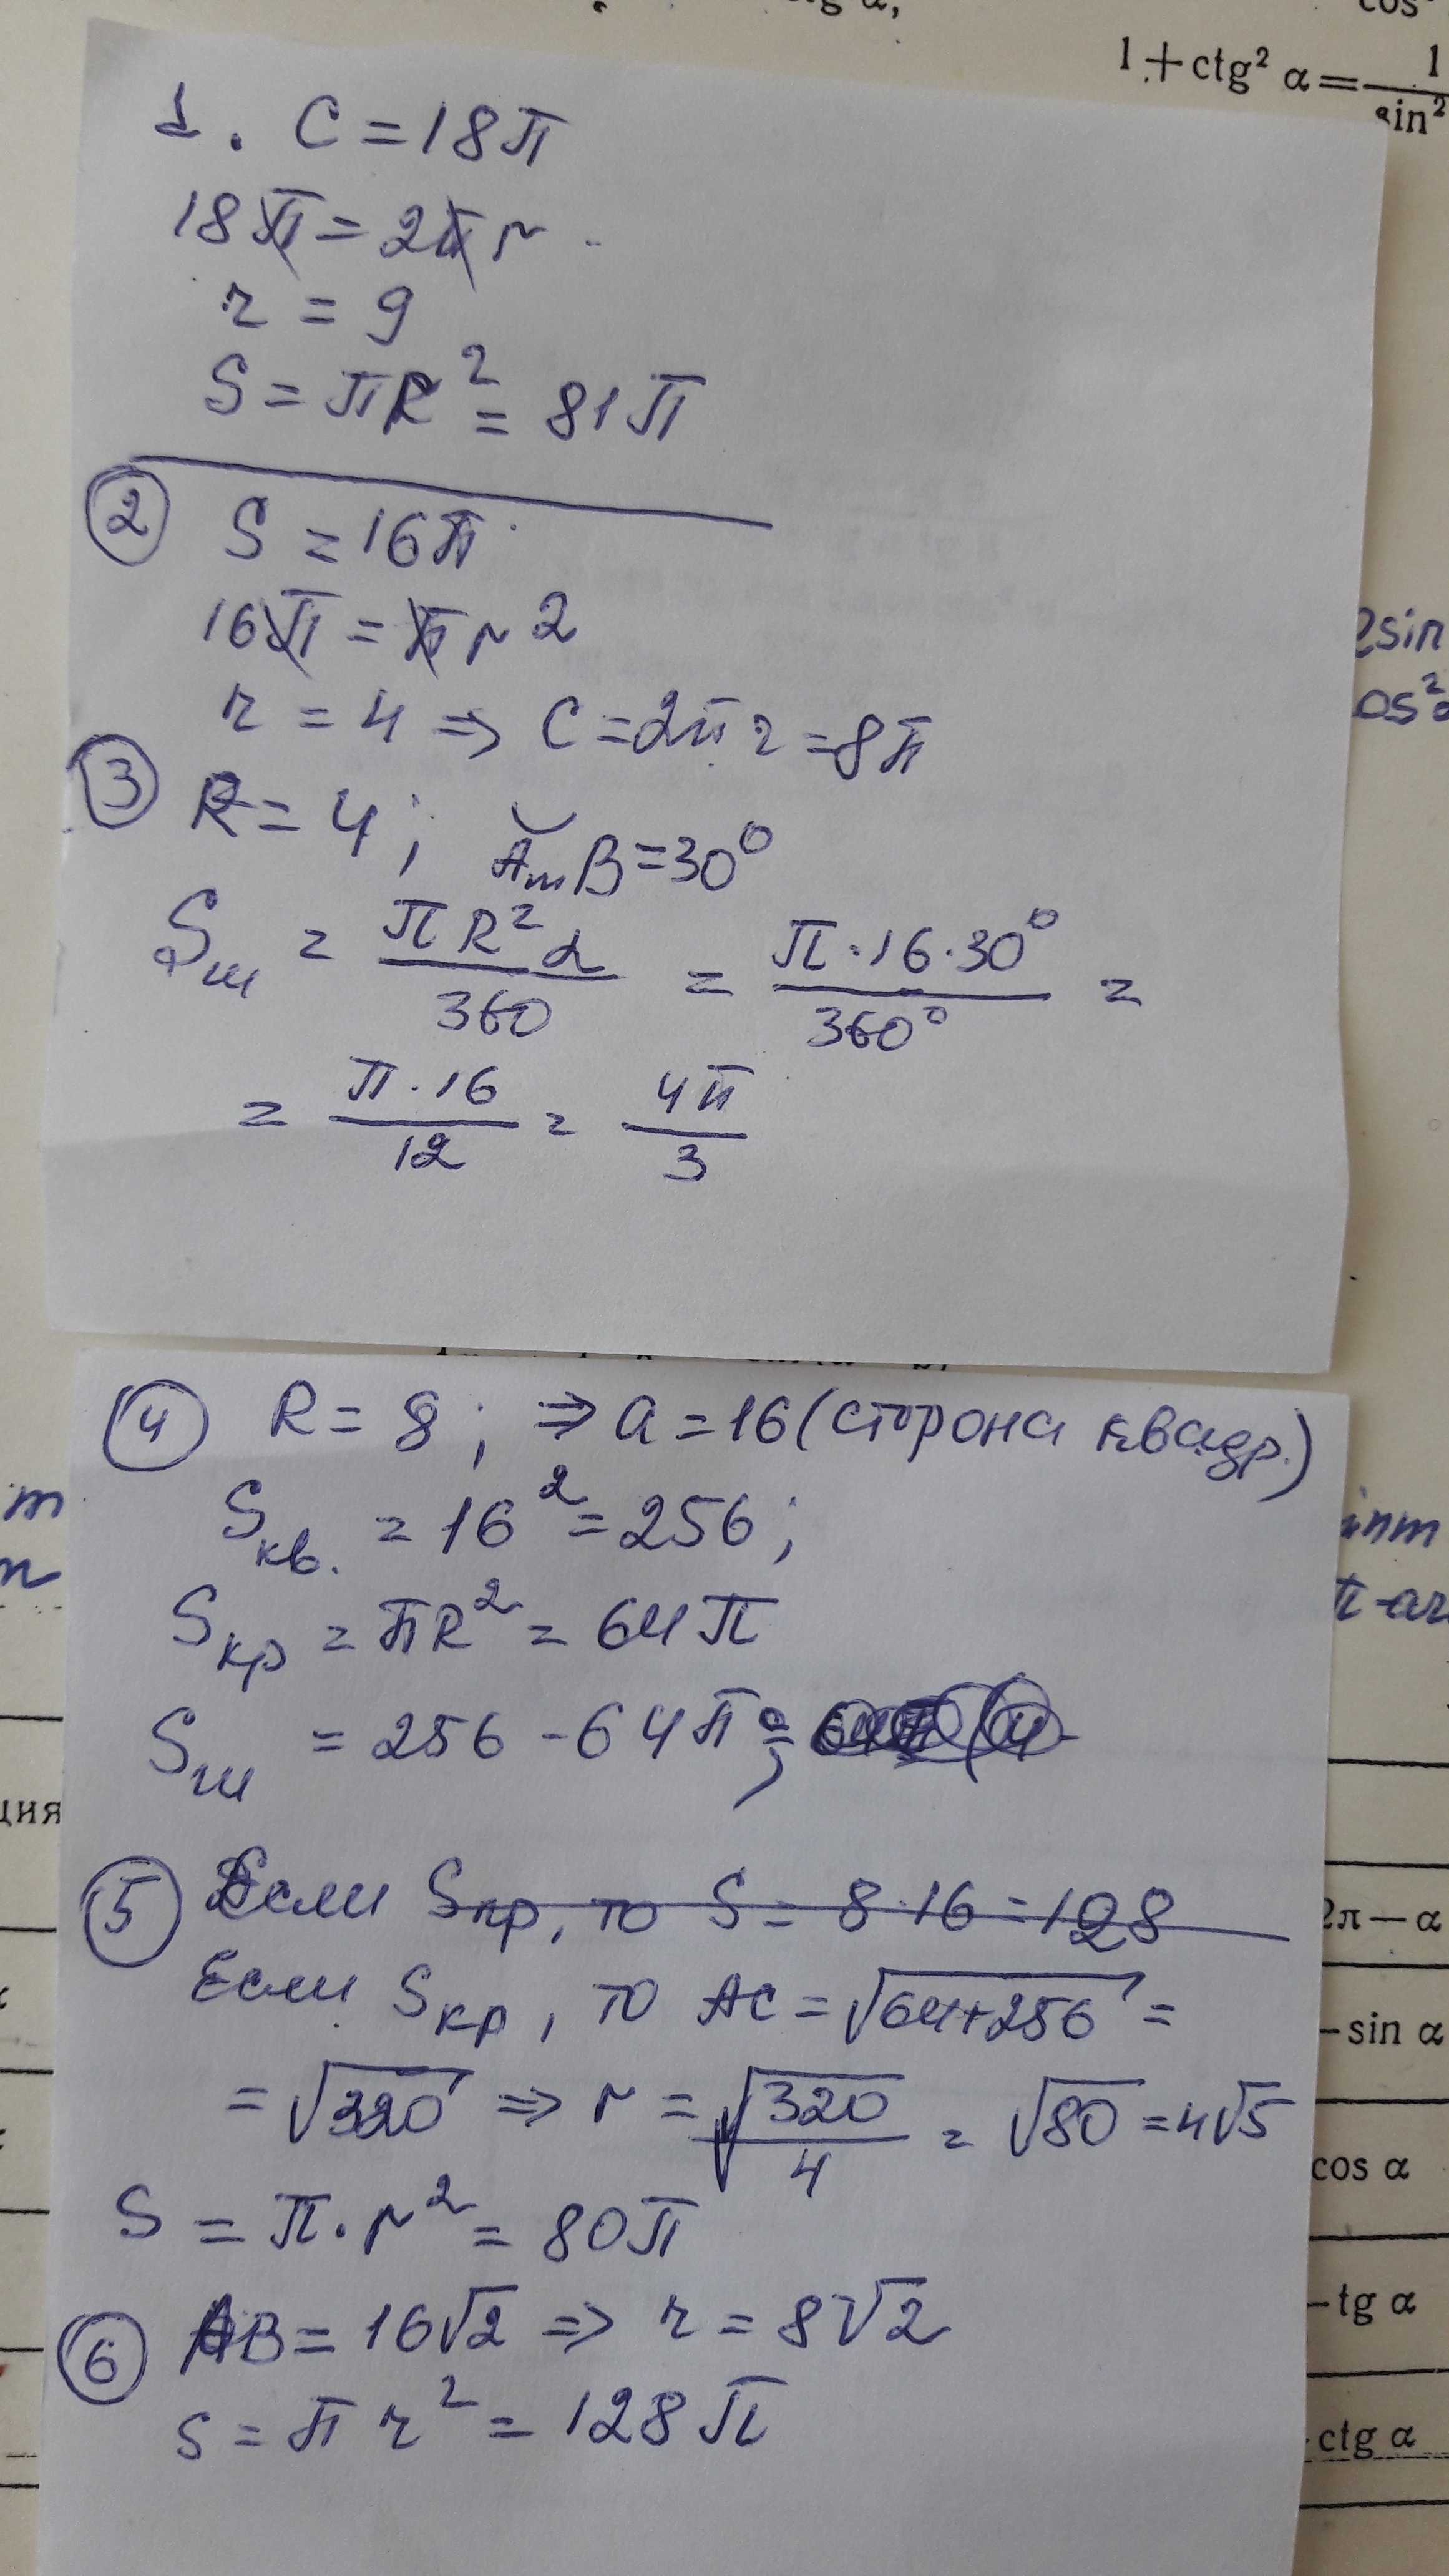 tg α,
cos
1+ctg² α=1/sin²
1. C=18π
18π=2πr
r=9
S=πR²=81π
② S=16π
16π=πr²
r=4⇒C=2πr=8π
③ R=4; ◡AmB=30°
Sш=πR²α/360=π·16·30°/360°=
=π·16/12=4π/3
2sin
os²
④ R=8; ⇒a=16(сторона квадр.)
Sкв.=16²=256;
Sкр=πR²=64π
Sш=256-64π;
m
n
inm
π-ar
ция
⑤ Если Sпр, то S=8·16=128
Если Sкр, то AC=√64+256=
=√320⇒r=√320/4=√80=4√5
S=π·r²=80π
⑥ AB=16√2⇒r=8√2
S=πr²=128π
2π—α
—sin α
cos α
—tg α
ctg α